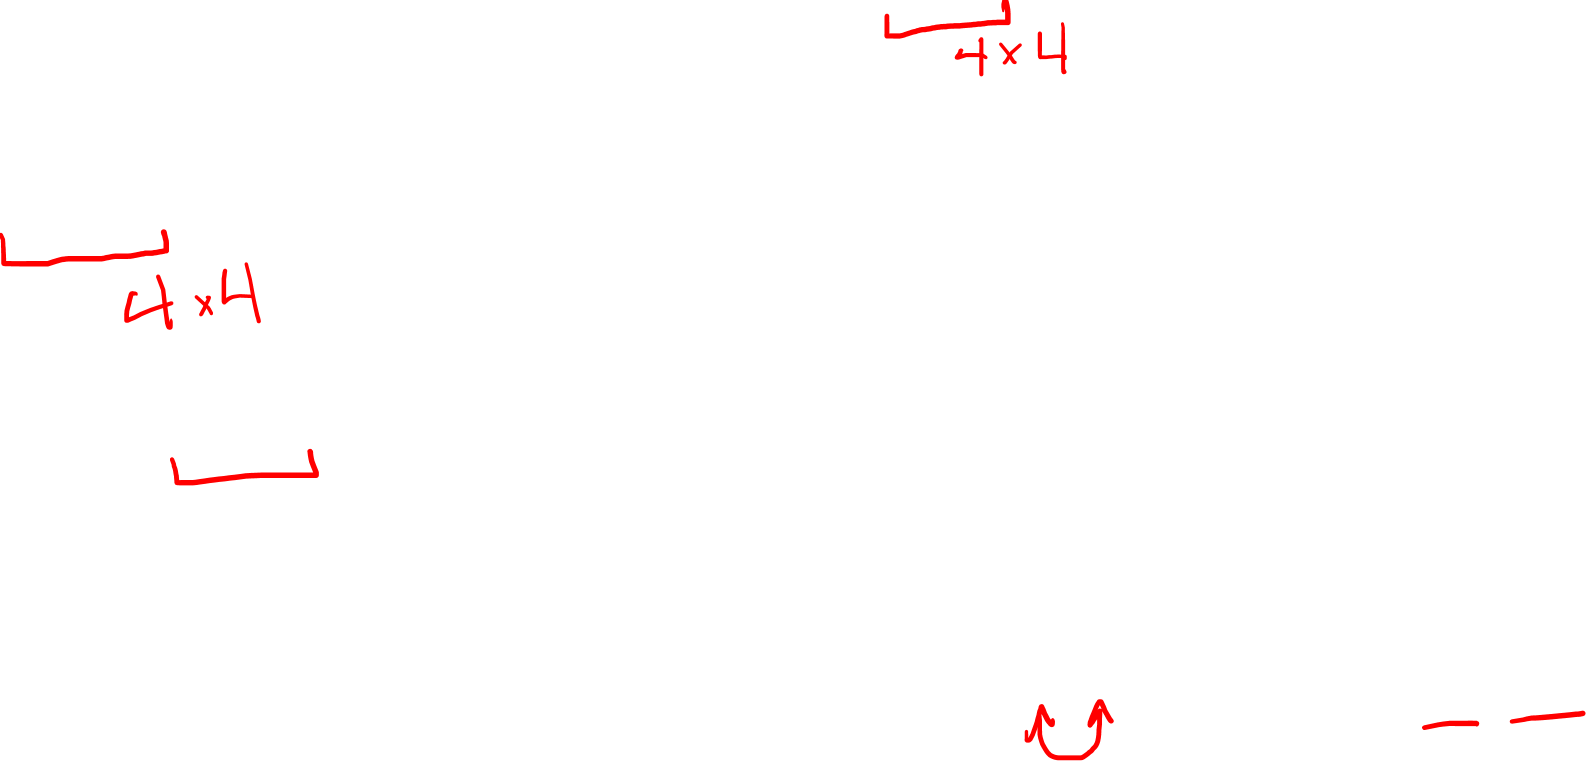 4 × 4
4 × 4